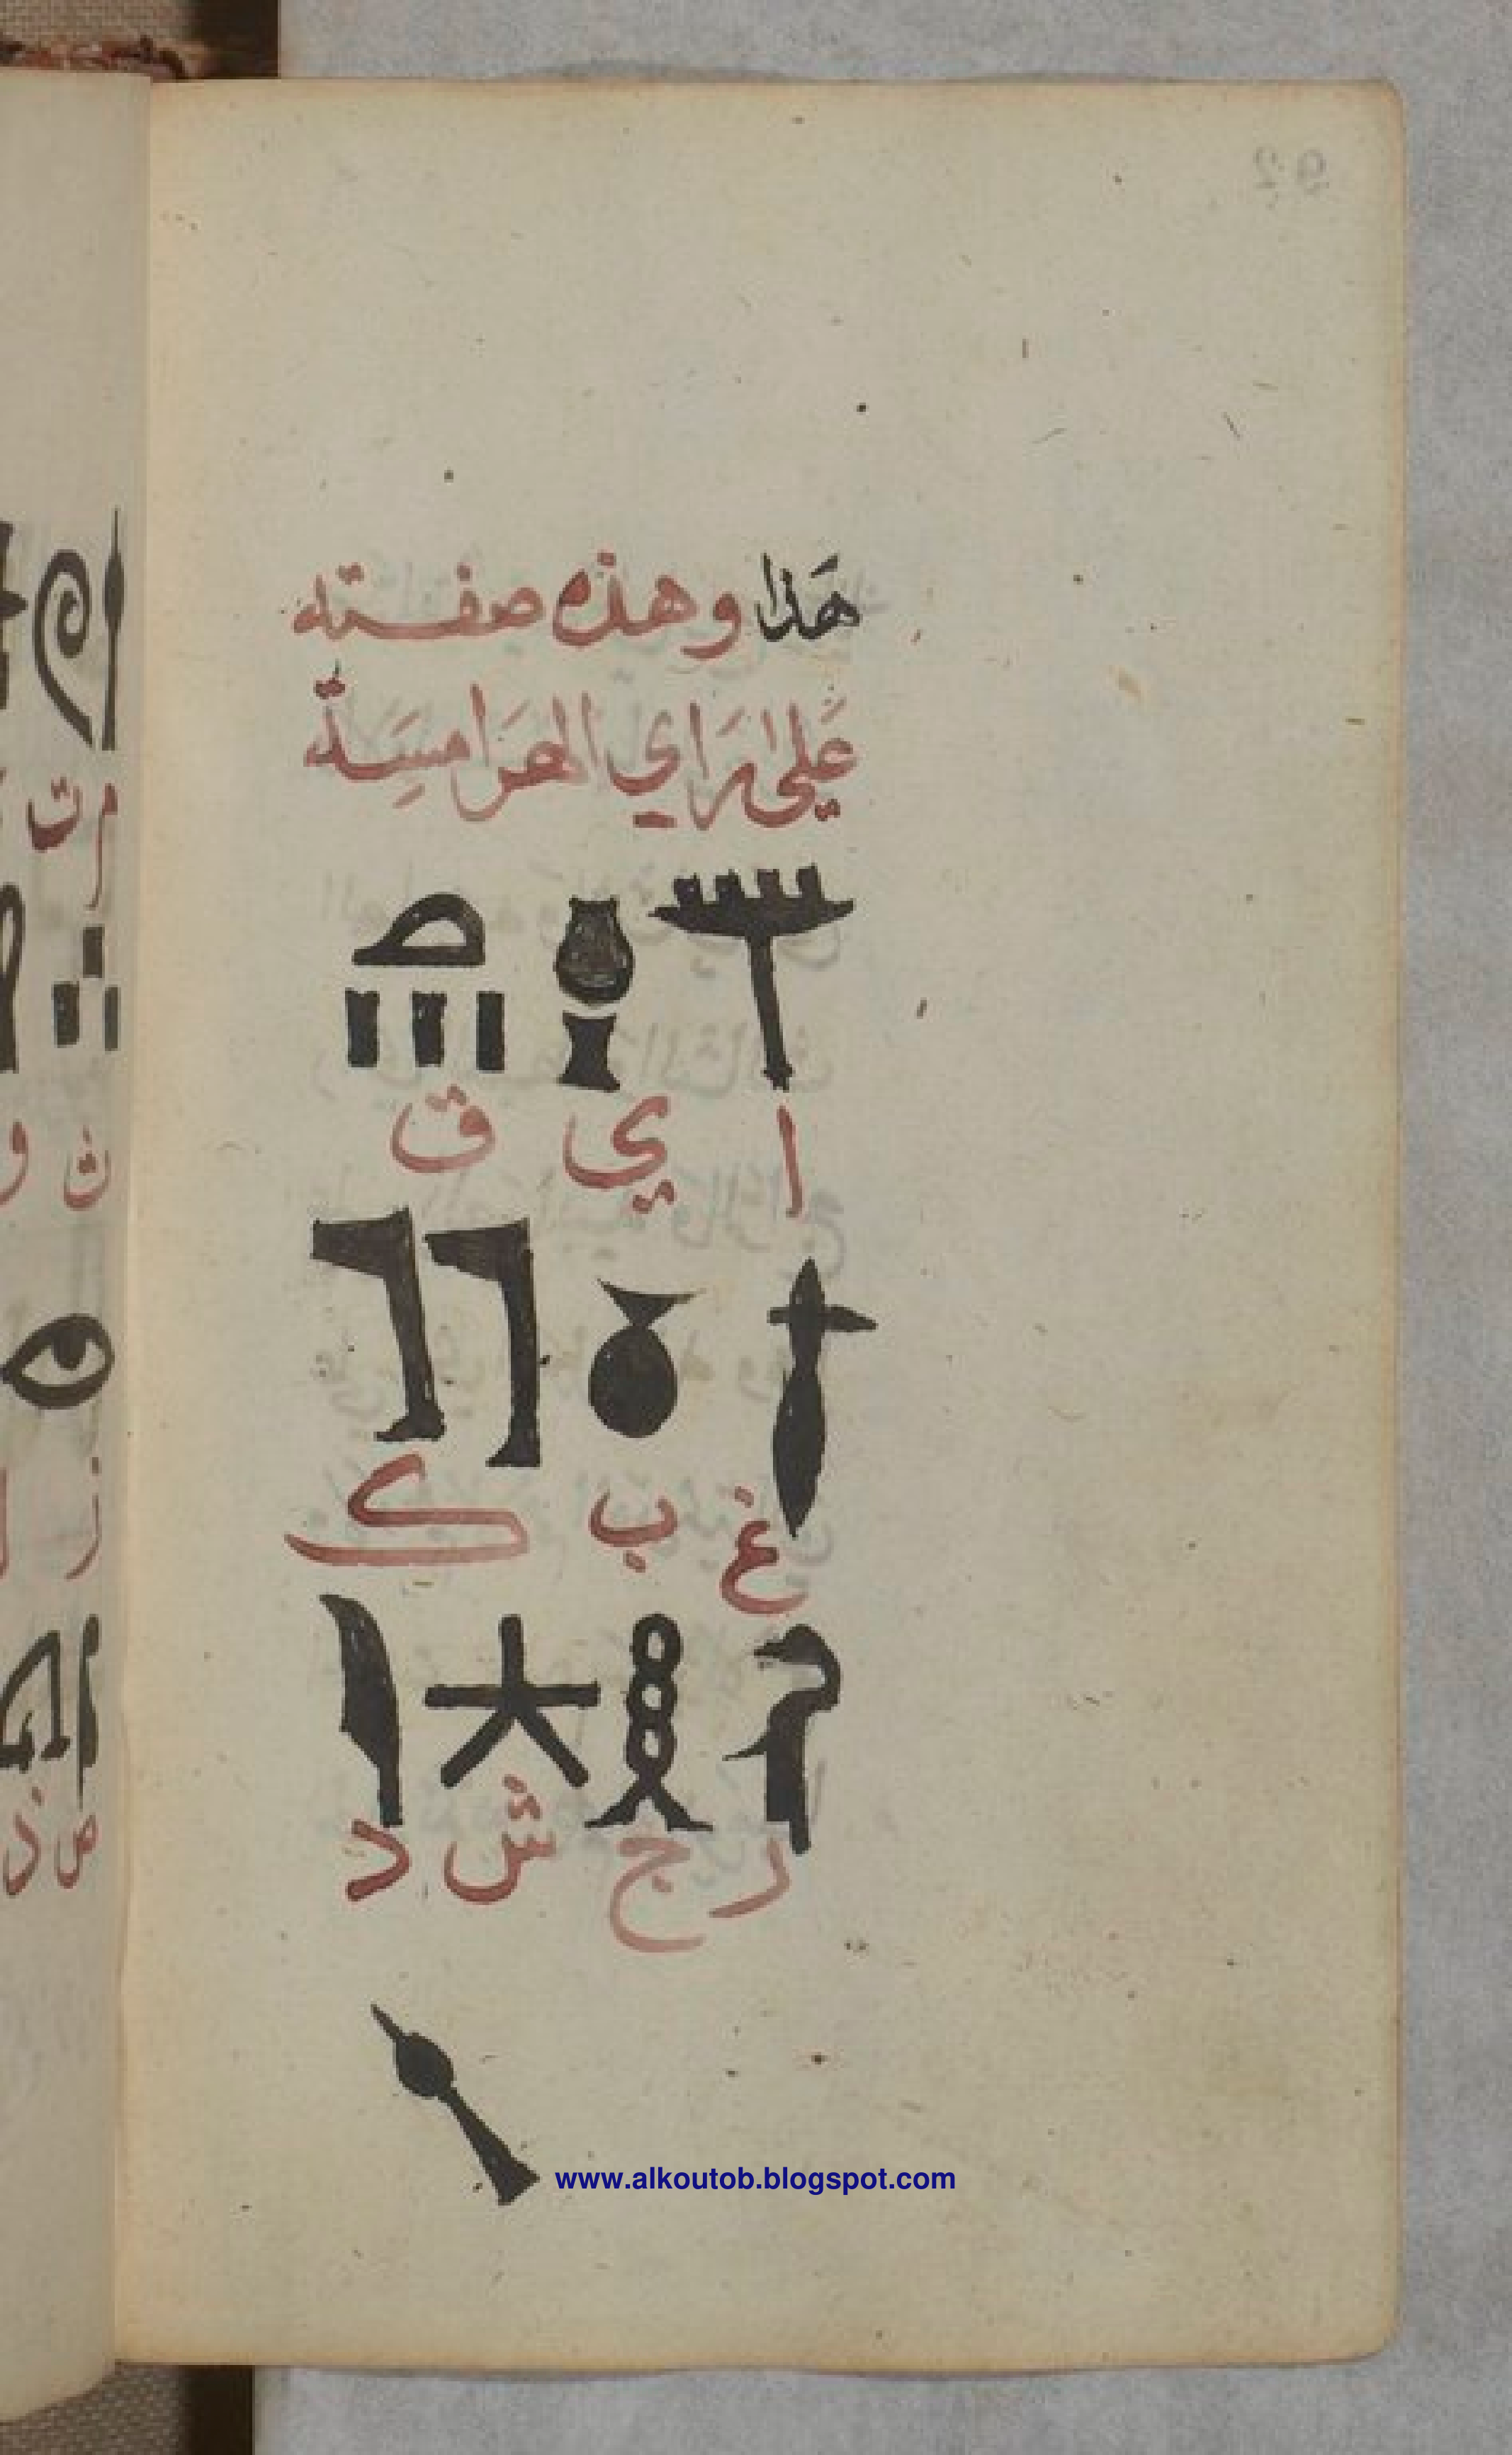 هَذا وهذه صفته
عَلى رَاي الهَرَامِسَة
ا ي ق
غ ب ك
ر ج ش د
www.alkoutob.blogspot.com